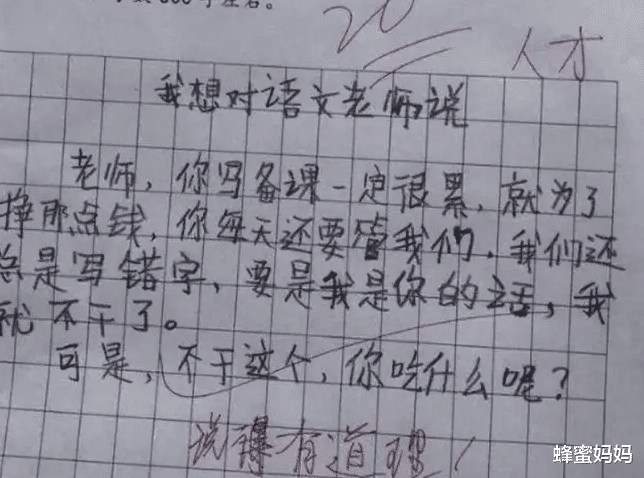 20
人才
我想对语文老师说
老师,你写备课一定很累,就为了
挣那点钱,你每天还要管我们,我们还
总是写错字,要是我是你的话,我
就不干了。
可是,不干这个,你吃什么呢?
说得有道理!
蜂蜜妈妈